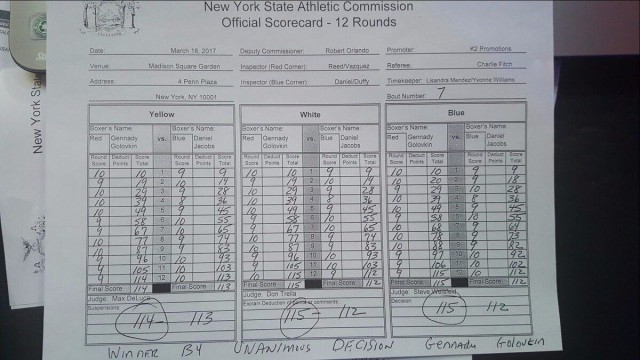 New York State Athletic Commission
Official Scorecard - 12 Rounds
Date: March 18, 2017 Deputy Commissioner: Robert Orlando Promoter: K2 Promotions
Venue: Madison Square Garden Inspector (Red Corner): Reed/Vazquez Referee: Charlie Fitch
Address: 4 Penn Plaza Inspector (Blue Corner): Daniel/Duffy Timekeeper: Lisandra Mendez/Yvonne Williams
New York, NY 10001 Bout Number: 7
Yellow White Blue
Boxer's Name: Boxer's Name: Boxer's Name: Boxer's Name: Boxer's Name: Boxer's Name:
Red Gennady Golovkin vs. Blue Daniel Jacobs Red Gennady Golovkin vs. Blue Daniel Jacobs Red Gennady Golovkin vs. Blue Daniel Jacobs
Round Score Deduct Points Score Total Round Score Deduct Points Score Total Round Score Deduct Points Score Total Round Score Deduct Points Score Total Round Score Deduct Points Score Total Round Score Deduct Points Score Total
10 10 1 9 9 10 10 1 9 9 10 10 1 9 9
9 19 2 10 19 9 19 2 10 19 10 20 2 9 18
10 29 3 9 28 10 29 3 9 28 9 29 3 10 28
10 39 4 8 36 10 39 4 8 36 10 39 4 8 36
10 49 5 9 45 10 49 5 9 45 10 49 5 9 45
9 58 6 10 55 9 58 6 10 55 9 58 6 10 55
9 67 7 10 65 9 67 7 10 65 10 68 7 9 64
10 77 8 9 74 10 77 8 9 74 10 78 8 9 73
10 87 9 9 83 10 88 9 9 82
9 96 10 10 93 9 97 10 10 92
9 105 11 10 103 9 106 11 10 102
9 115 12 10 112
Final Score 114 Final Score 113 Final Score 115 Final Score 112 Final Score 115 Final Score 112
Judge: Max DeLuca Judge: Don Trella Judge: Steve Weisfeld
Suspensions Explain Deduction of Points or comments: Decision
114 - 113 115 - 112 115 112
WINNER BY UNANIMOUS DECISION GENNADY GOLOVKIN
New York State